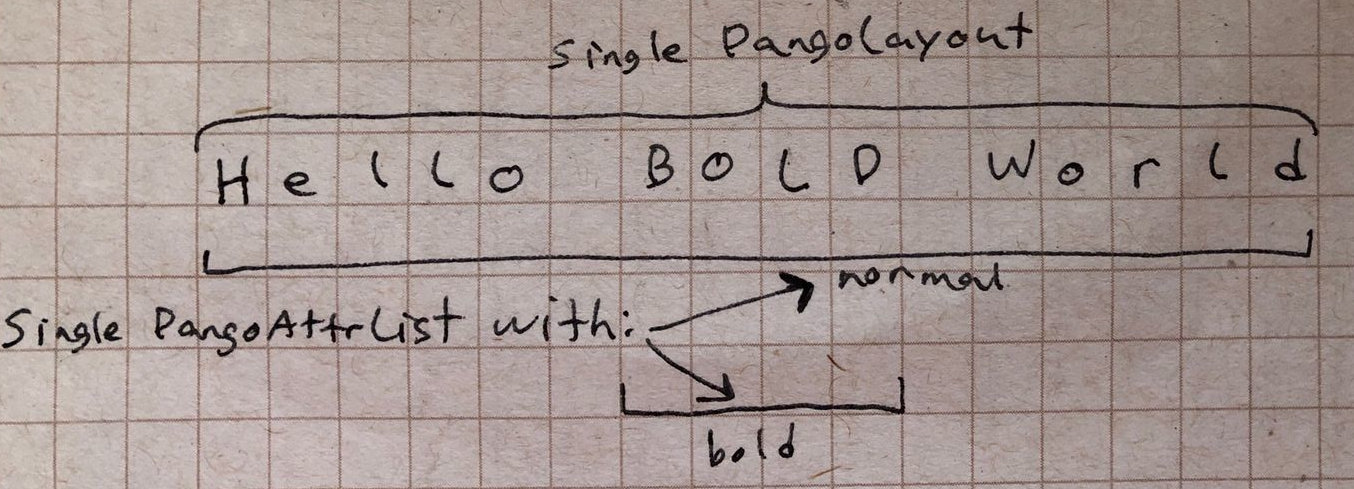 Single PangoLayout
Hello BOLD World
normal
Single PangoAttrList with:
bold